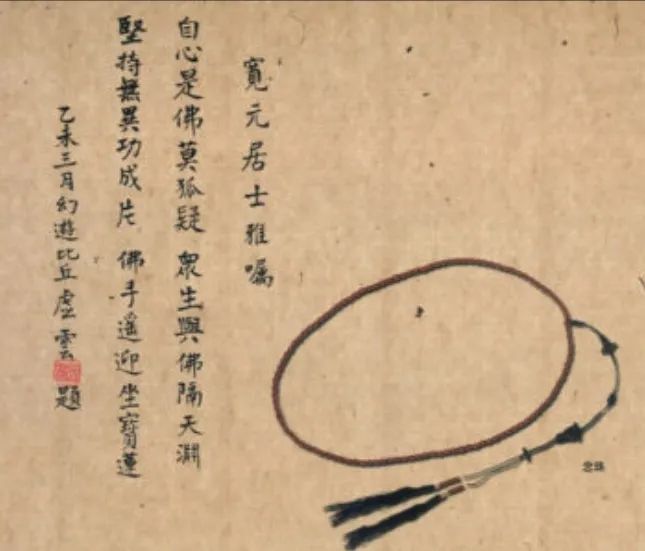 寬元居士雅囑
自心是佛莫狐疑 眾生與佛隔天淵
堅持無異功成片 佛手遙迎坐寶蓮
乙未三月幻遊比丘虛雲題
念珠